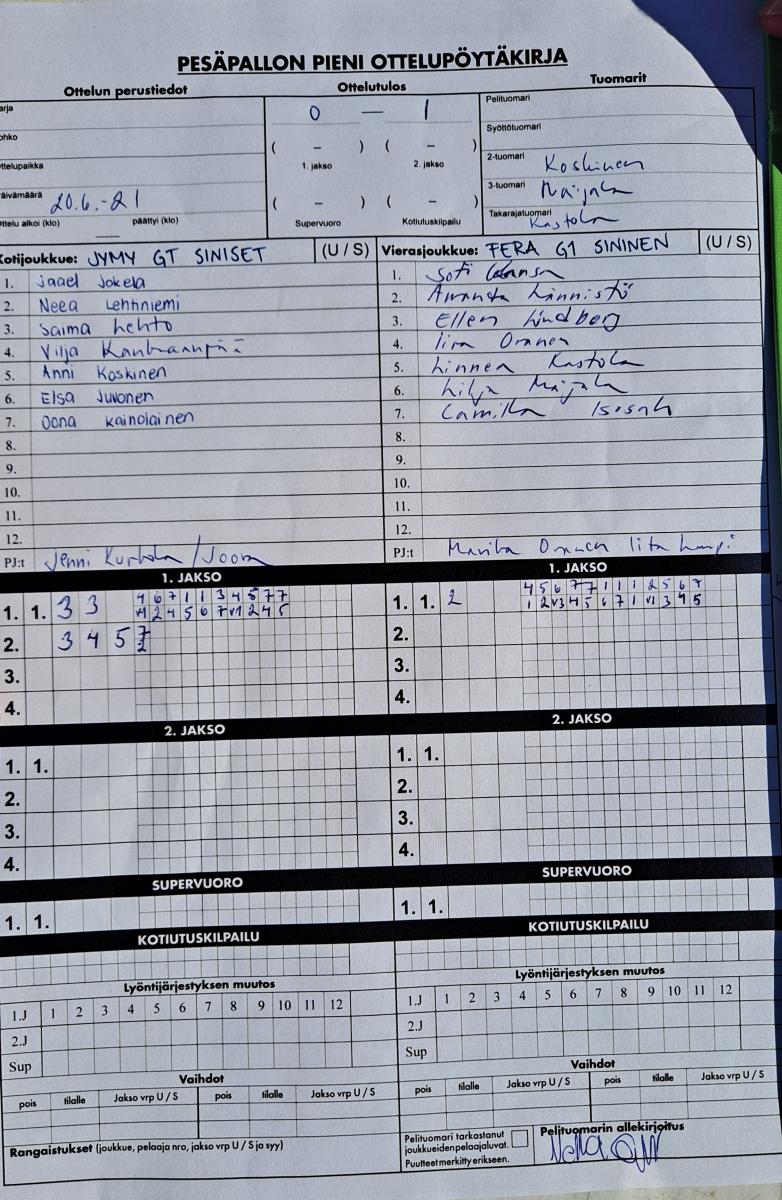 PESÄPALLON PIENI OTTELUPÖYTÄKIRJA
Ottelun perustiedot
Ottelutulos
Tuomarit
arja
ohko
ttelupaikka
äivämäärä 20.6.-21
ttelu alkoi (klo) päättyi (klo)
0 — 1
( – ) ( – )
1. jakso 2. jakso
( – ) ( – )
Supervuoro Kotiutuskilpailu
Pelituomari
Syöttötuomari
2-tuomari Koskinen
3-tuomari Maijala
Takarajatuomari Kastola
Kotijoukkue: JYMY GT SINISET (U / S)
1. Jaael Jokela
2. Neea Lehtiniemi
3. Saima Lehto
4. Vilja Kanhaanpää
5. Anni Koskinen
6. Elsa Juvonen
7. Oona Kainolainen
8.
9.
10.
11.
12.
PJ:t Jenni /Joona
Vierasjoukkue: FERA G1 SININEN (U / S)
1. Sofi
2. Amanda Männistö
3. Ellen Lindberg
4. Iira Oranen
5. Linnea Kastola
6. Lilja Maijala
7. Camilla
8.
9.
10.
11.
12.
PJ:t Marita Oranen Iita
1. JAKSO
1. 1. 3 3 4 6 7 1 1 3 4 5 7 7
v1 2 4 5 6 7 v1 2 4 5
2. 3 4 5 7
2
3.
4.
1. JAKSO
1. 1. 2 4 5 6 7 7 1 1 1 2 5 6 7
1 2 v3 4 5 6 7 1 v1 3 4 5
2.
3.
4.
2. JAKSO
1. 1.
2.
3.
4.
2. JAKSO
1. 1.
2.
3.
4.
SUPERVUORO
1. 1.
SUPERVUORO
1. 1.
KOTIUTUSKILPAILU
KOTIUTUSKILPAILU
Lyöntijärjestyksen muutos
1.J 1 2 3 4 5 6 7 8 9 10 11 12
2.J
Sup
Lyöntijärjestyksen muutos
1.J 1 2 3 4 5 6 7 8 9 10 11 12
2.J
Sup
Vaihdot
pois tilalle Jakso vrp U / S pois tilalle Jakso vrp U / S
Vaihdot
pois tilalle Jakso vrp U / S pois tilalle Jakso vrp U / S
Rangaistukset (joukkue, pelaaja nro, jakso vrp U / S ja syy)
Pelituomari tarkastanut
joukkueidenpelaajaluvat.
Puutteet merkitty erikseen.
Pelituomarin allekirjoitus